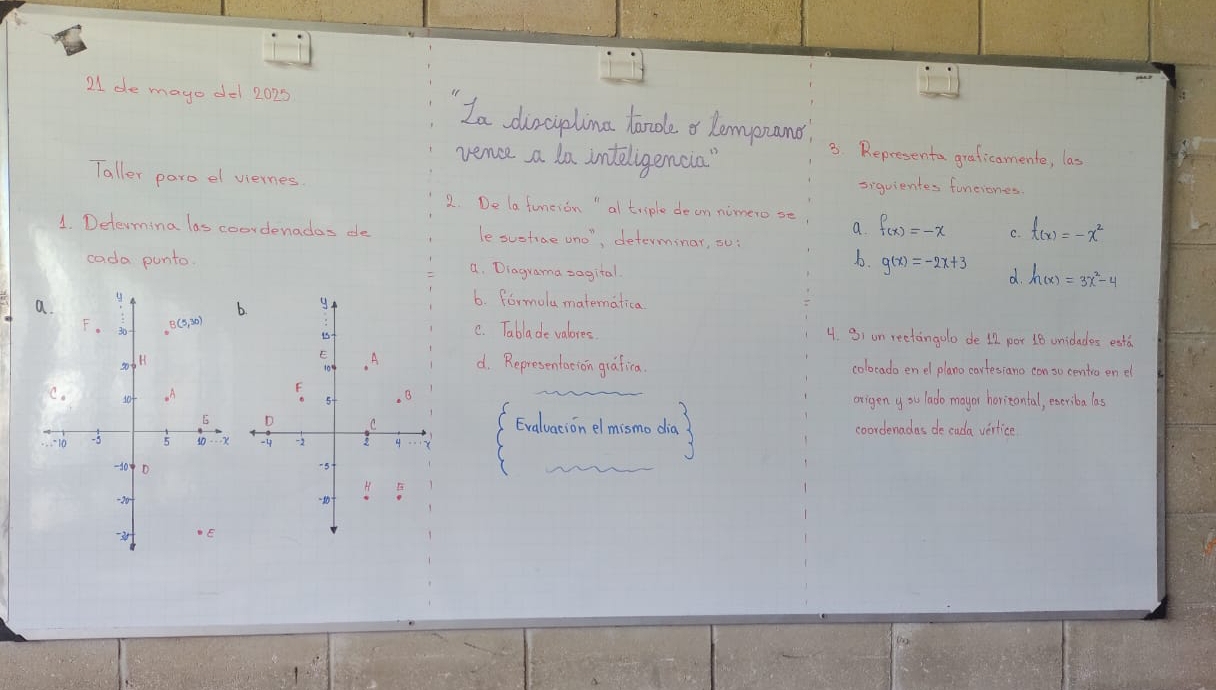 21 de mayo del 2025
Taller para el viernes.
1. Determina las coordenadas de
cada punto.
a.
y
F
30
B(5,30)
20
H
C
10
A
G
...-10
-5
5
10 ...x
-10
D
-20
-30
E
b.
y
15
E
10
A
F
5
B
D
C
-4
-2
2
4 ...x
-5
H
-10
"La disciplina tarde o temprano,
vence a la inteligencia"
2. De la función "al triple de un número se
le sustrae uno", determinar, su:
a. Diagrama sagital.
b. fórmula matemática
c. Tabla de valores.
d. Representación gráfica.
Evaluación el mismo día
3. Representa graficamente, las
siguientes funciones.
a. f(x) = -x
b. g(x) = -2x+3
c. t(x) = -x²
d. h(x) = 3x²-4
4. Si un rectángulo de 12 por 18 unidades está
colocado en el plano cartesiano con su centro en el
origen y su lado mayor horizontal, escriba las
coordenadas de cada vértice.